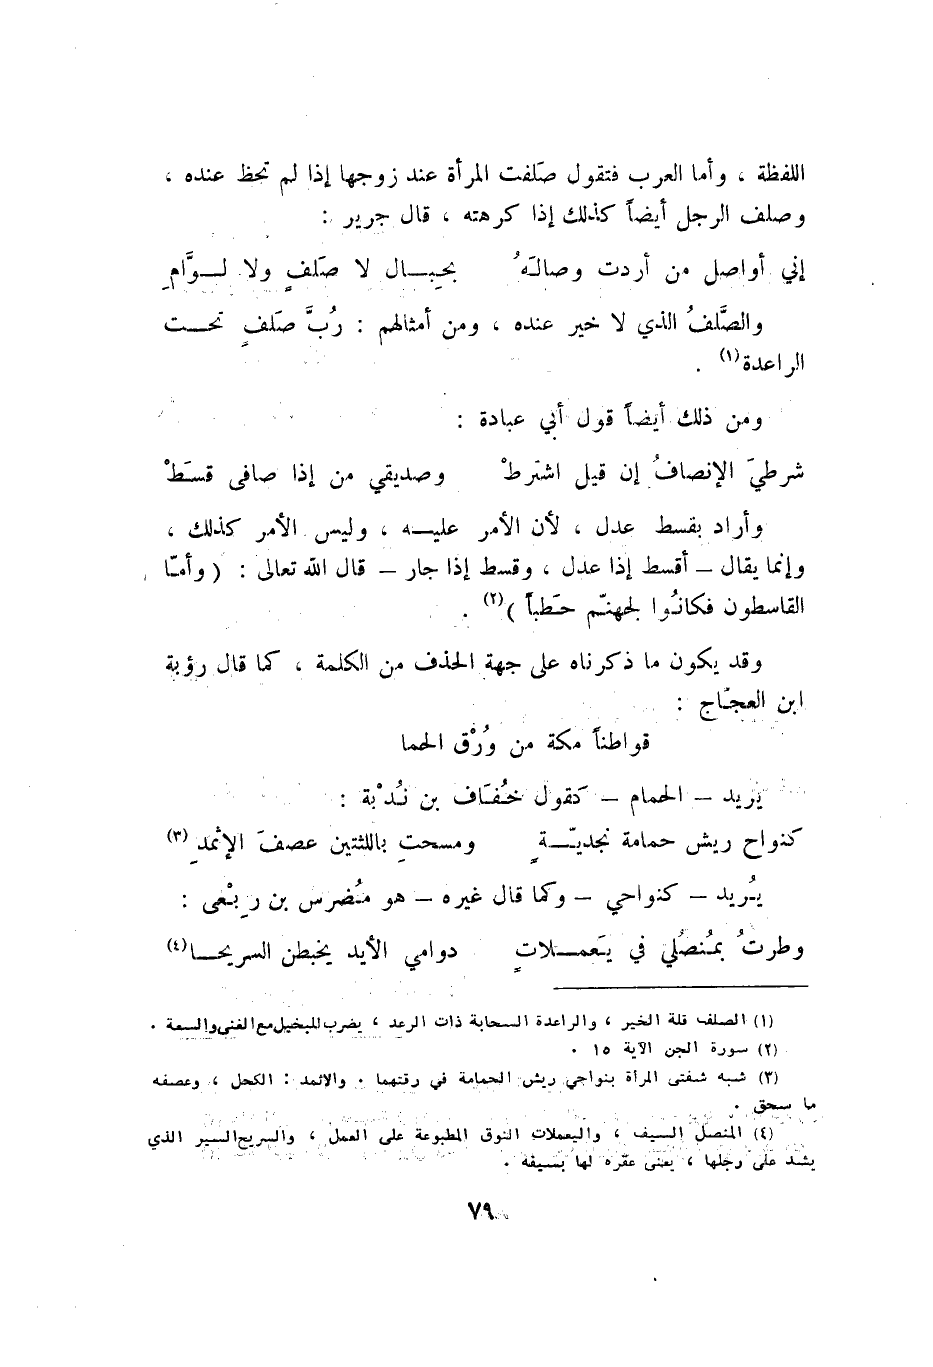 اللفظة ، وأما العرب فتقول صَلفت المرأة عند زوجها إذا لم تحظ عنده ،
وصلف الرجل أيضاً كذلك إذا كرهته ، قال جرير :
إني أواصل من أردت وصالَهُ بحِبـــال لا صَلفٍ ولا لــوَّامِ
والصَّلفُ الذي لا خير عنده ، ومن أمثالهم : رُبَّ صَلفٍ تحــت
الراعدة(١) .
ومن ذلك أيضاً قول أبي عبادة :
شرطيَ الإنصافُ إن قيل اشترطْ وصديقي من إذا صافى قسَطْ
وأراد بقسط عدل ، لأن الأمر عليــه ، وليس الأمر كذلك ،
وإنما يقال – أقسط إذا عدل ، وقسط إذا جار – قال الله تعالى : ( وأمّا
القاسطون فكانُوا لجهنّم حَطباً )(٢) .
وقد يكون ما ذكرناه على جهة الحذف من الكلمة ، كما قال رؤبة
ابن العجّاج :
قواطناً مكة من وُرْق الحما
يُريد – الحمام – كقول خُفَاف بن نُدْبة :
كنواح ريش حمامة نجديّـــةٍ ومسحتِ باللثتين عصفَ الإثمدِ (٣)
يُريد – كنواحي – وكما قال غيره – هو مُضرس بن رِبْعى :
وطرتُ بمُنصُلي في يَعمـــلاتٍ دوامي الأيد يخبطن السريحــا(٤)
(١) الصلف قلة الخير ، والراعدة السحابة ذات الرعد ، يضرب للبخيل مع الغنى والسعة .
(٢) سورة الجن الآية ١٥ .
(٣) شبه شفتى المرأة بنواجي ريش الحمامة في رقتهما . والاثمد : الكحل ، وعصفه
ما سحق .
(٤) المنصل السيف ، واليعملات النوق المطبوعة على العمل ، والسريح السير الذي
يشد على رجلها ، يعنى عقره لها بسيفه .
٧٩